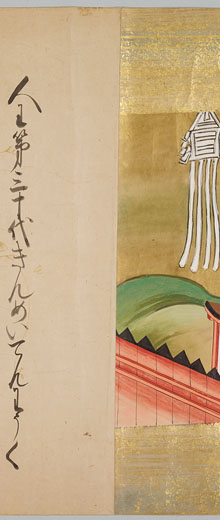 人王第三十代きんめいてんわうく